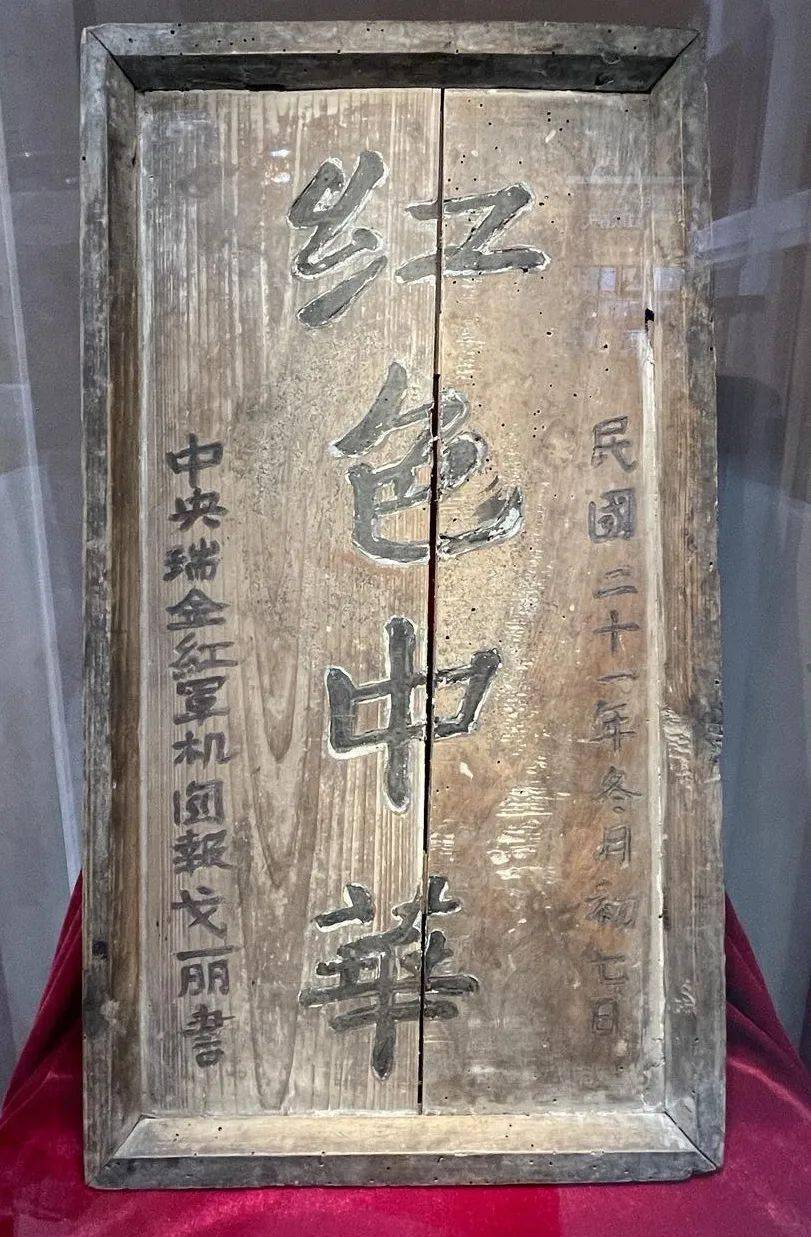 民國二十一年冬月初七日
红色中華
中央瑞金紅軍机囪報戈丽書